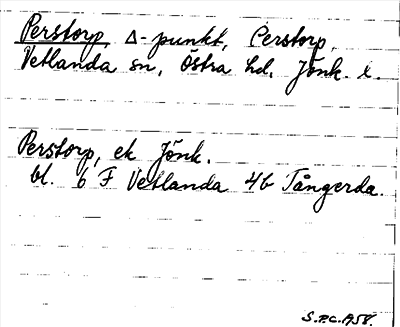 Perstorp, Δ-punkt, Perstorp,
Vetlanda sn, Östra hd, Jönk. l.
Perstorp, ek Jönk.
bl. 6 F Vetlanda 4b Tångerda.
S.P.C. 1958.